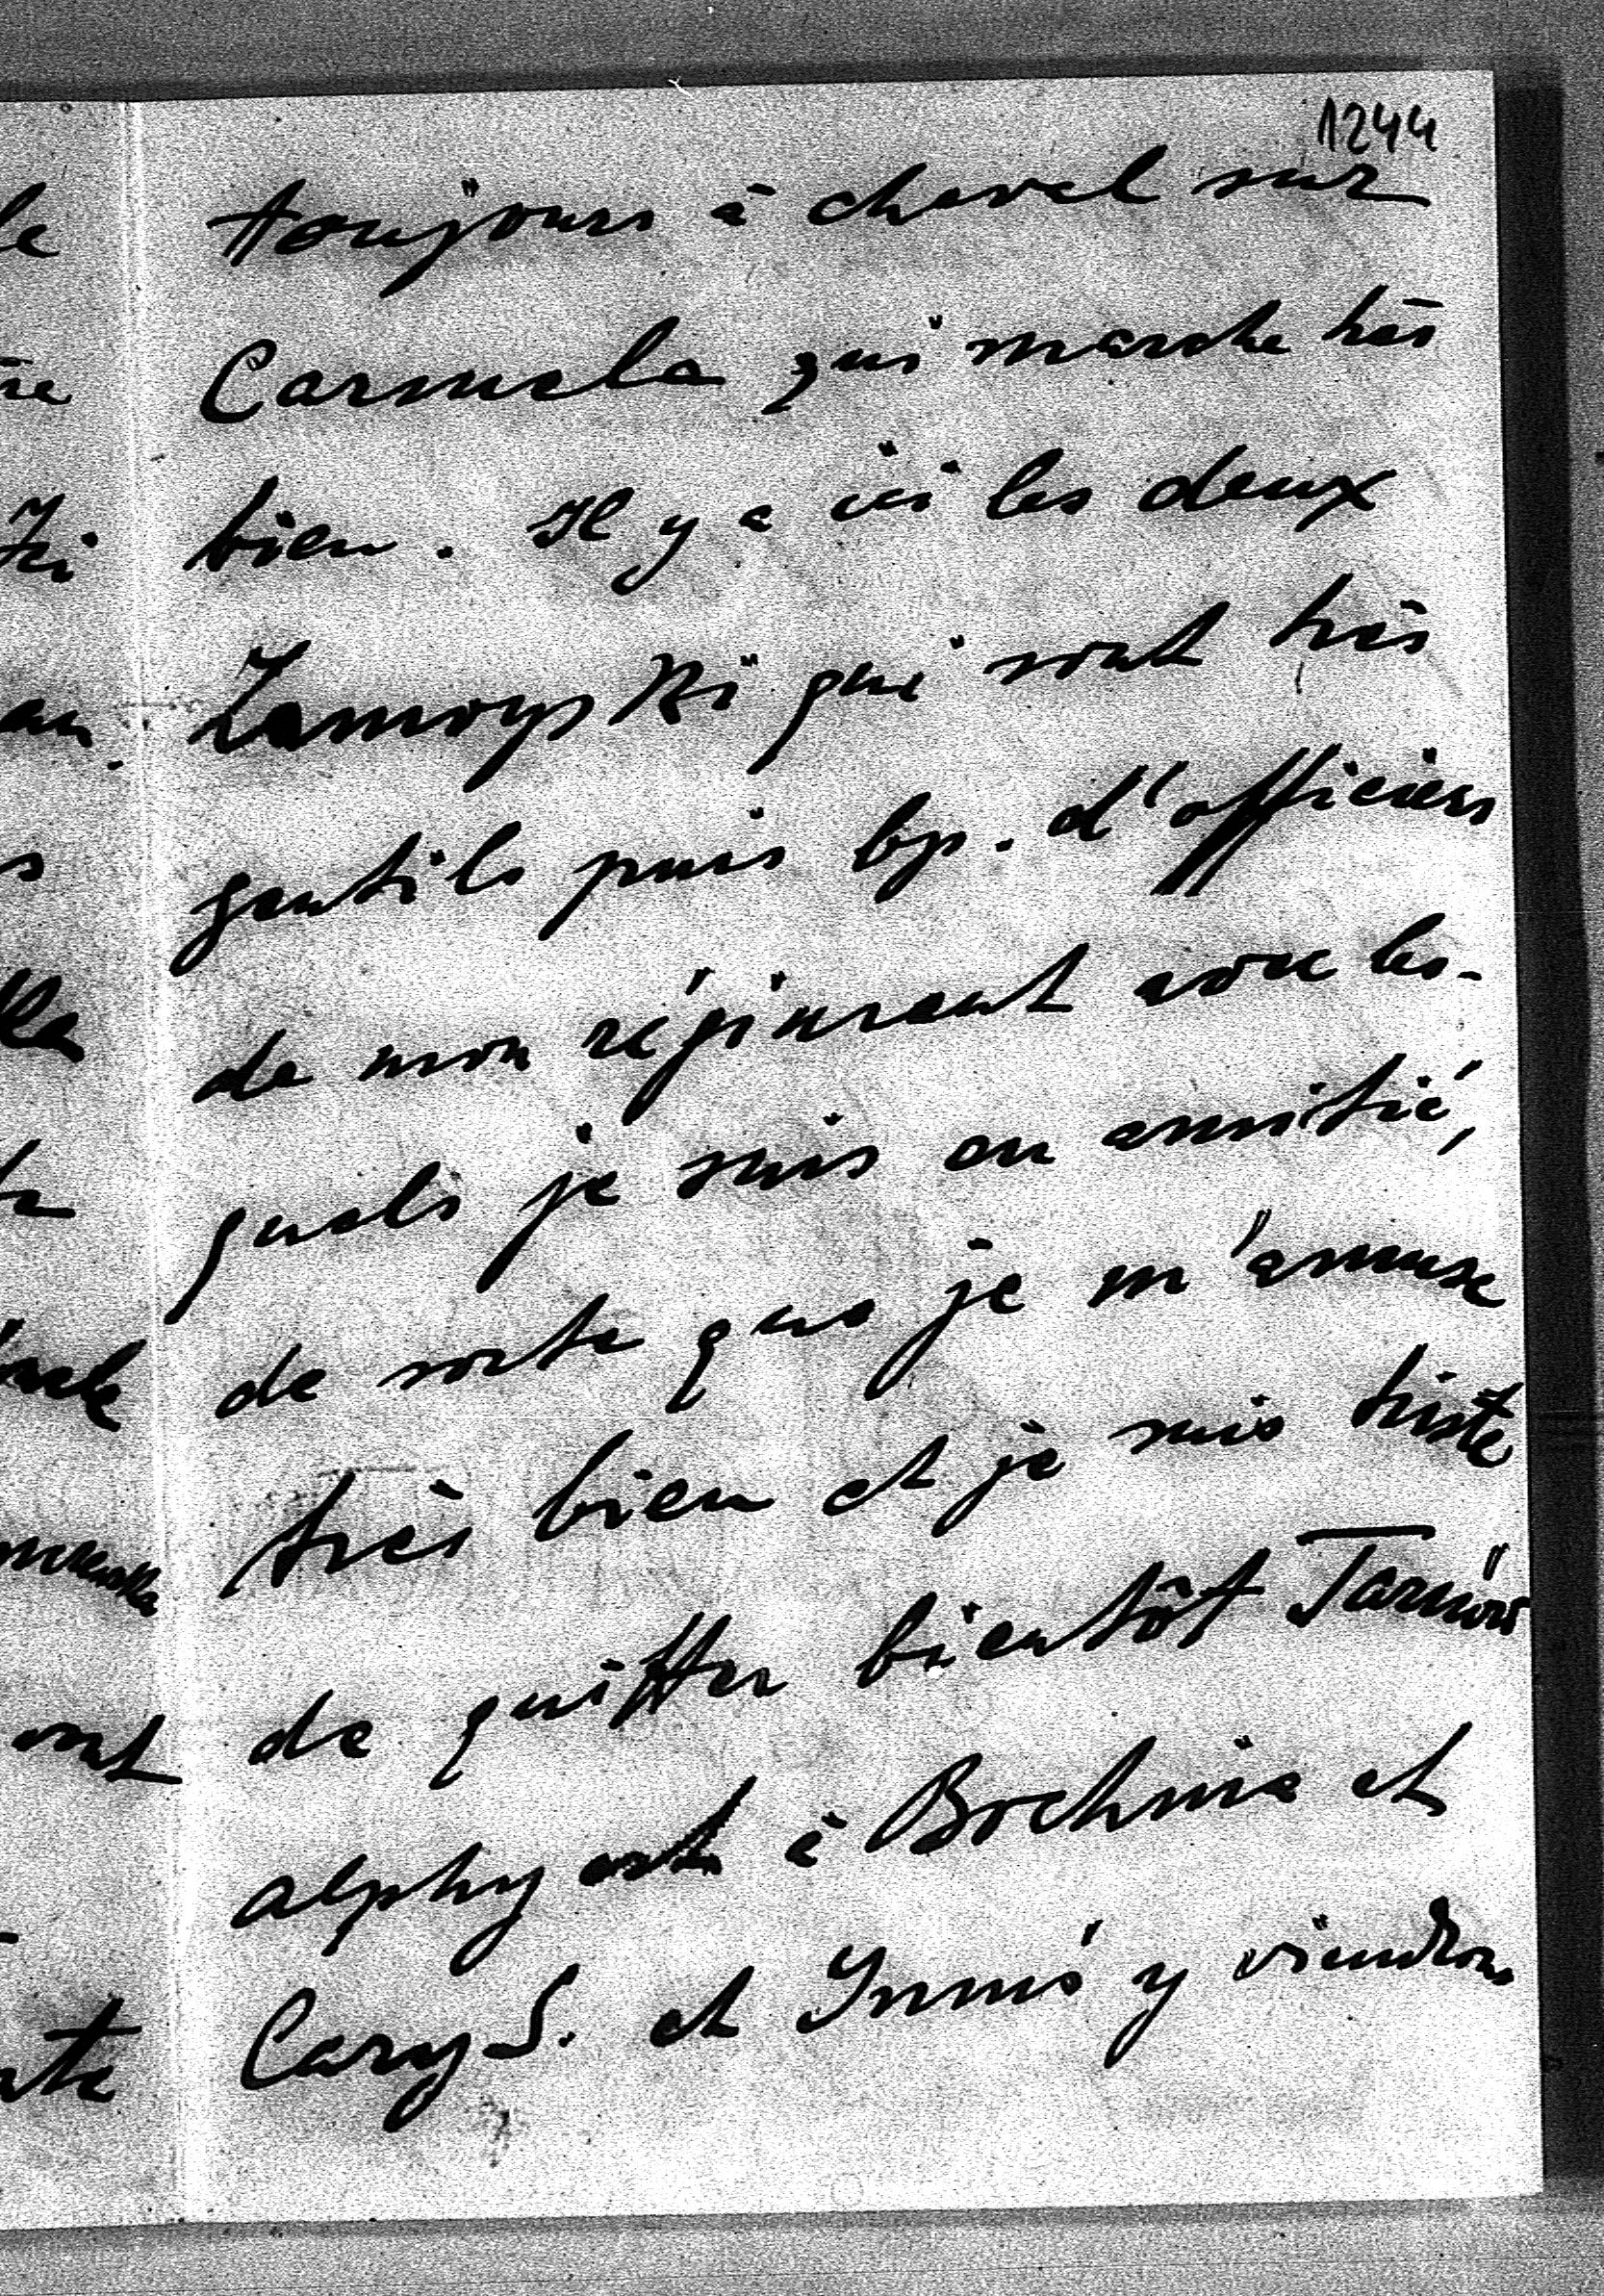 1244
toujours à cheval sur
Carmela qui marche très
bien. Il y a ici les deux
Zamoyski qui sont très
gentils puis bp. d'officiers
de mon régiment avec les-
quels je suis en amitié,
de sorte que je m'amuse
très bien et je suis triste
de quitter bientôt Tarnów
Alphy est à Bochnia et
Cary S. et y viendrons